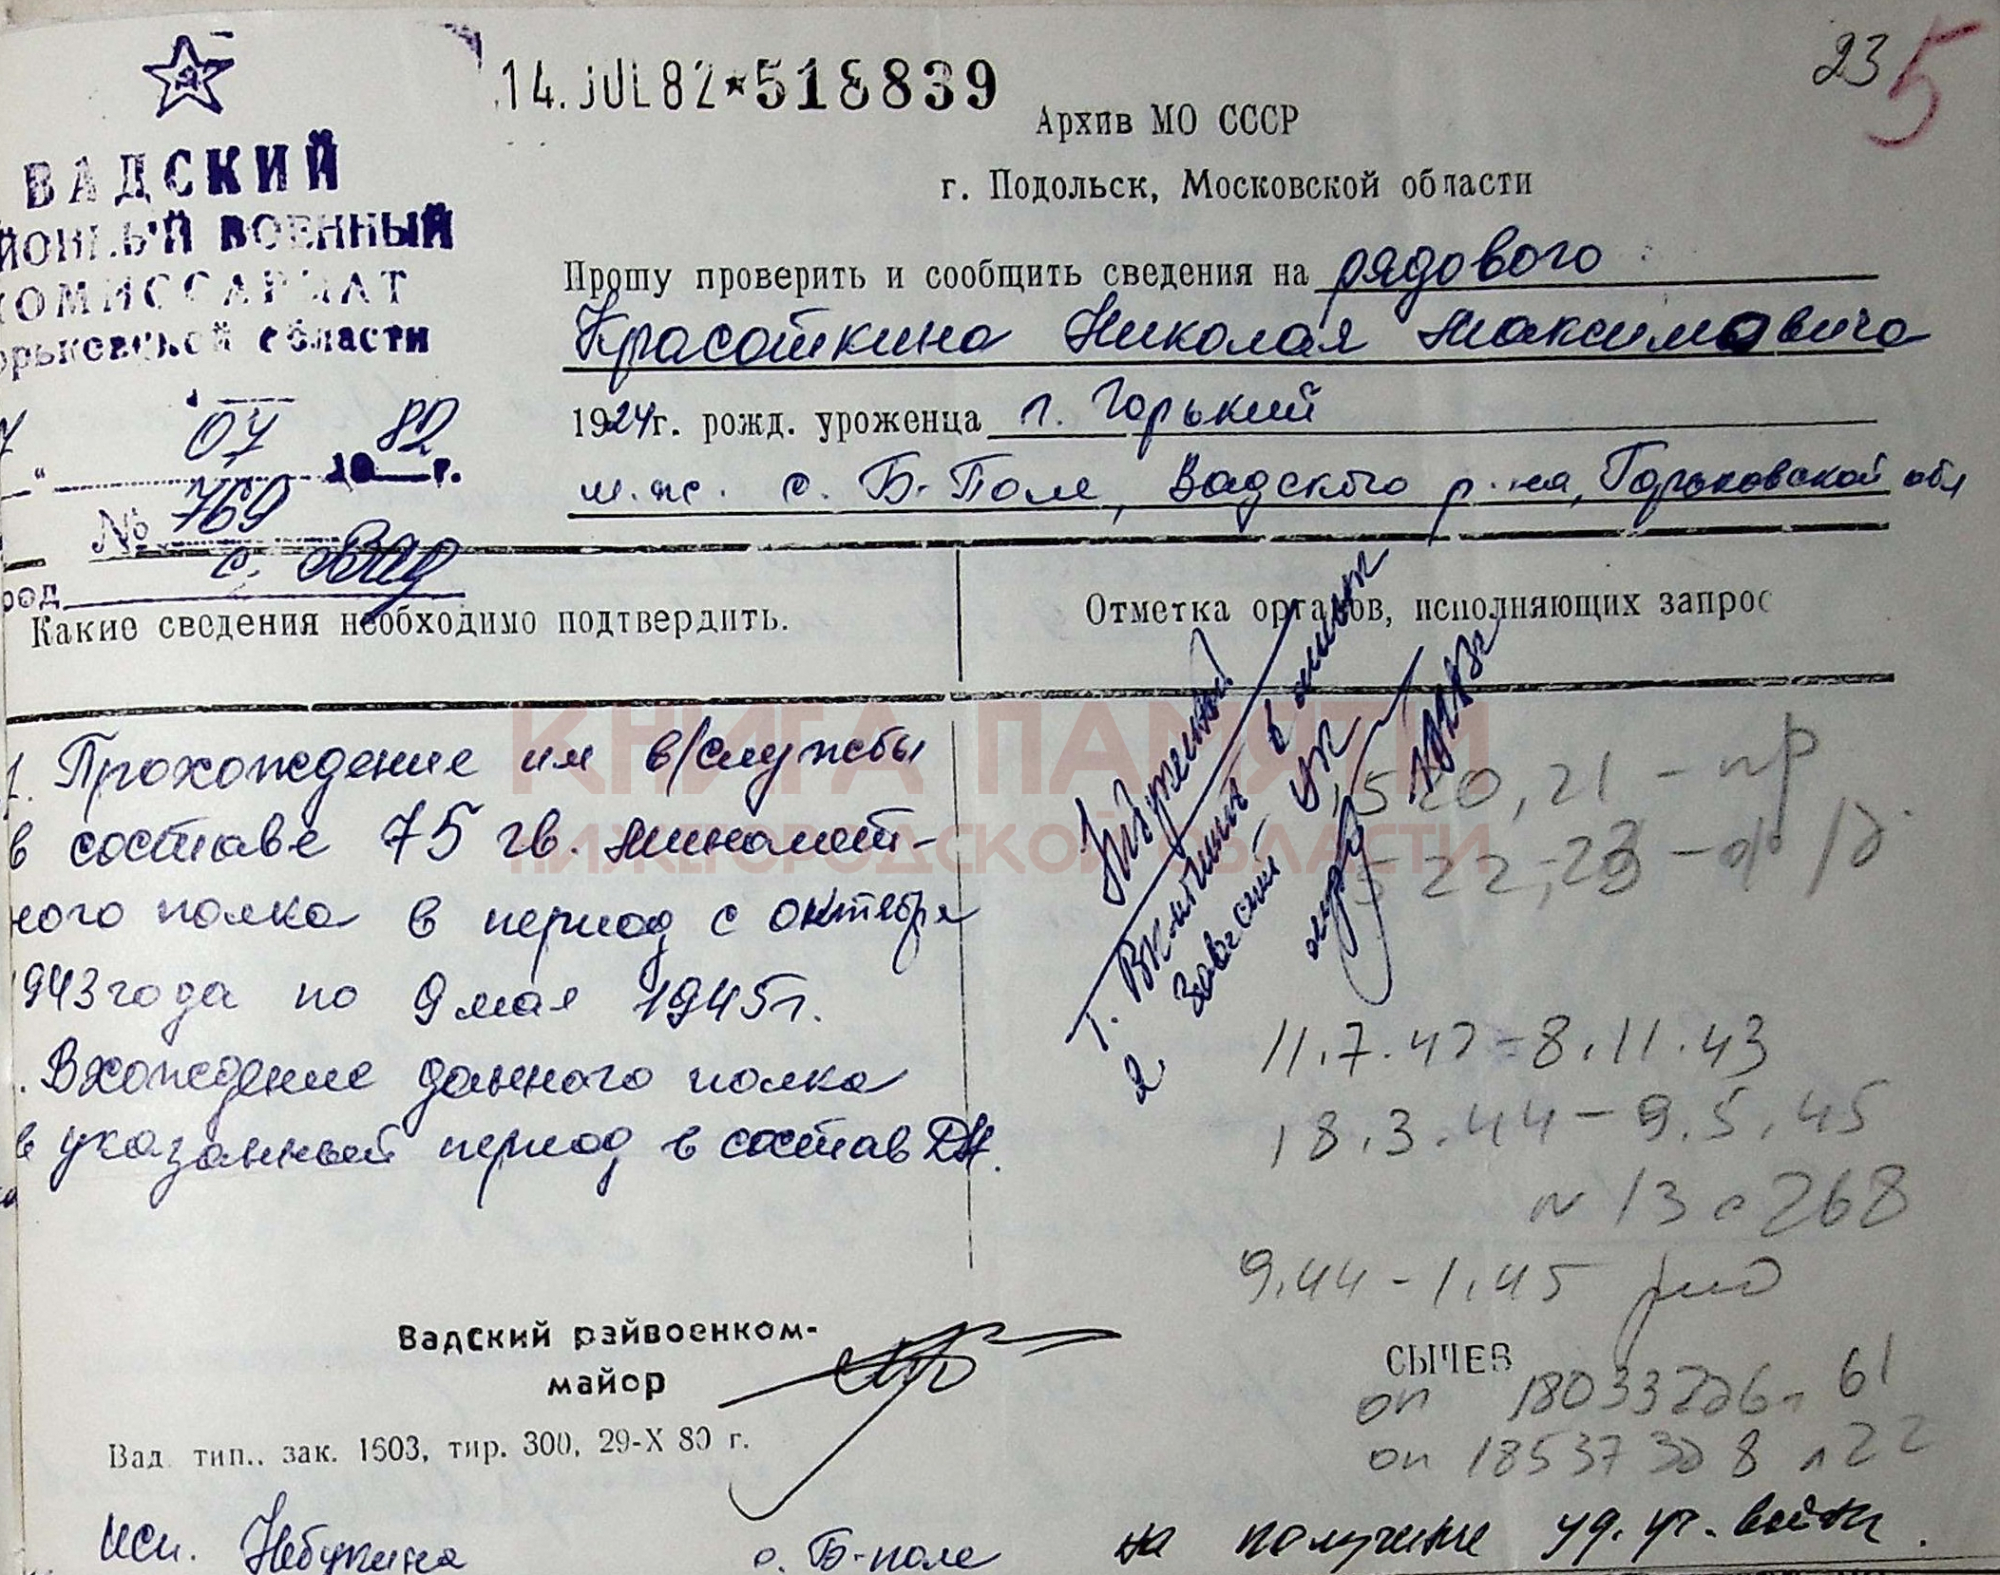 14. JUL 82 * 518839
23
5
ВАДСКИЙ
ЙОННЫЙ ВОЕННЫЙ
КОМИССАРИАТ
орьковской области
07 82
" 19 г.
№ 769
с. Вад
род
Архив МО СССР
г. Подольск, Московской области
Прошу проверить и сообщить сведения на рядового
Красоткина Николая Максимовича
1924г. рожд. уроженца г. Горький
м.ж. с. Б-Поле, Вадского р-на, Горьковской обл
Какие сведения необходимо подтвердить.
Отметка органов, исполняющих запрос
КНИГА ПАМЯТИ
НИЖЕГОРОДСКОЙ ОБЛАСТИ
1. Прохождение им в/службы
в составе 75 гв. миномет-
ного полка в период с октября
1943 года по 9 мая 1945г.
. Вхождение данного полка
в указанный период в состав ДА.
1.
2.
520, 21 - пр
522, 23 -
11.7.42 - 8.11.43
18.3.44 - 9.5.45
N 13 с 268
9.44 - 1.45
Вадский райвоенком-
майор
СЫЧЕВ
оп 180332 61
оп 185373 8 л 22
Вад. тип., зак. 1603, тир. 300, 29-X 80 г.
исп. Небукина
с. Б-поле
на получение уд. уч. войны.